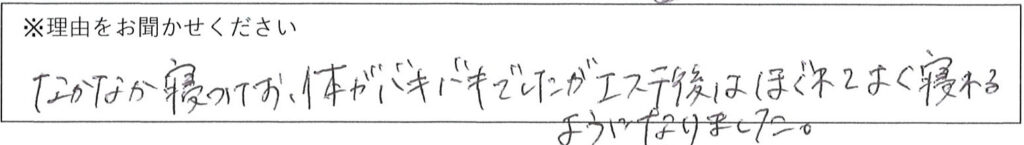 ※理由をお聞かせください
なかなか寝つけず、体がバキバキでしたがエステ後はほぐれてよく寝れる
ようになりました。